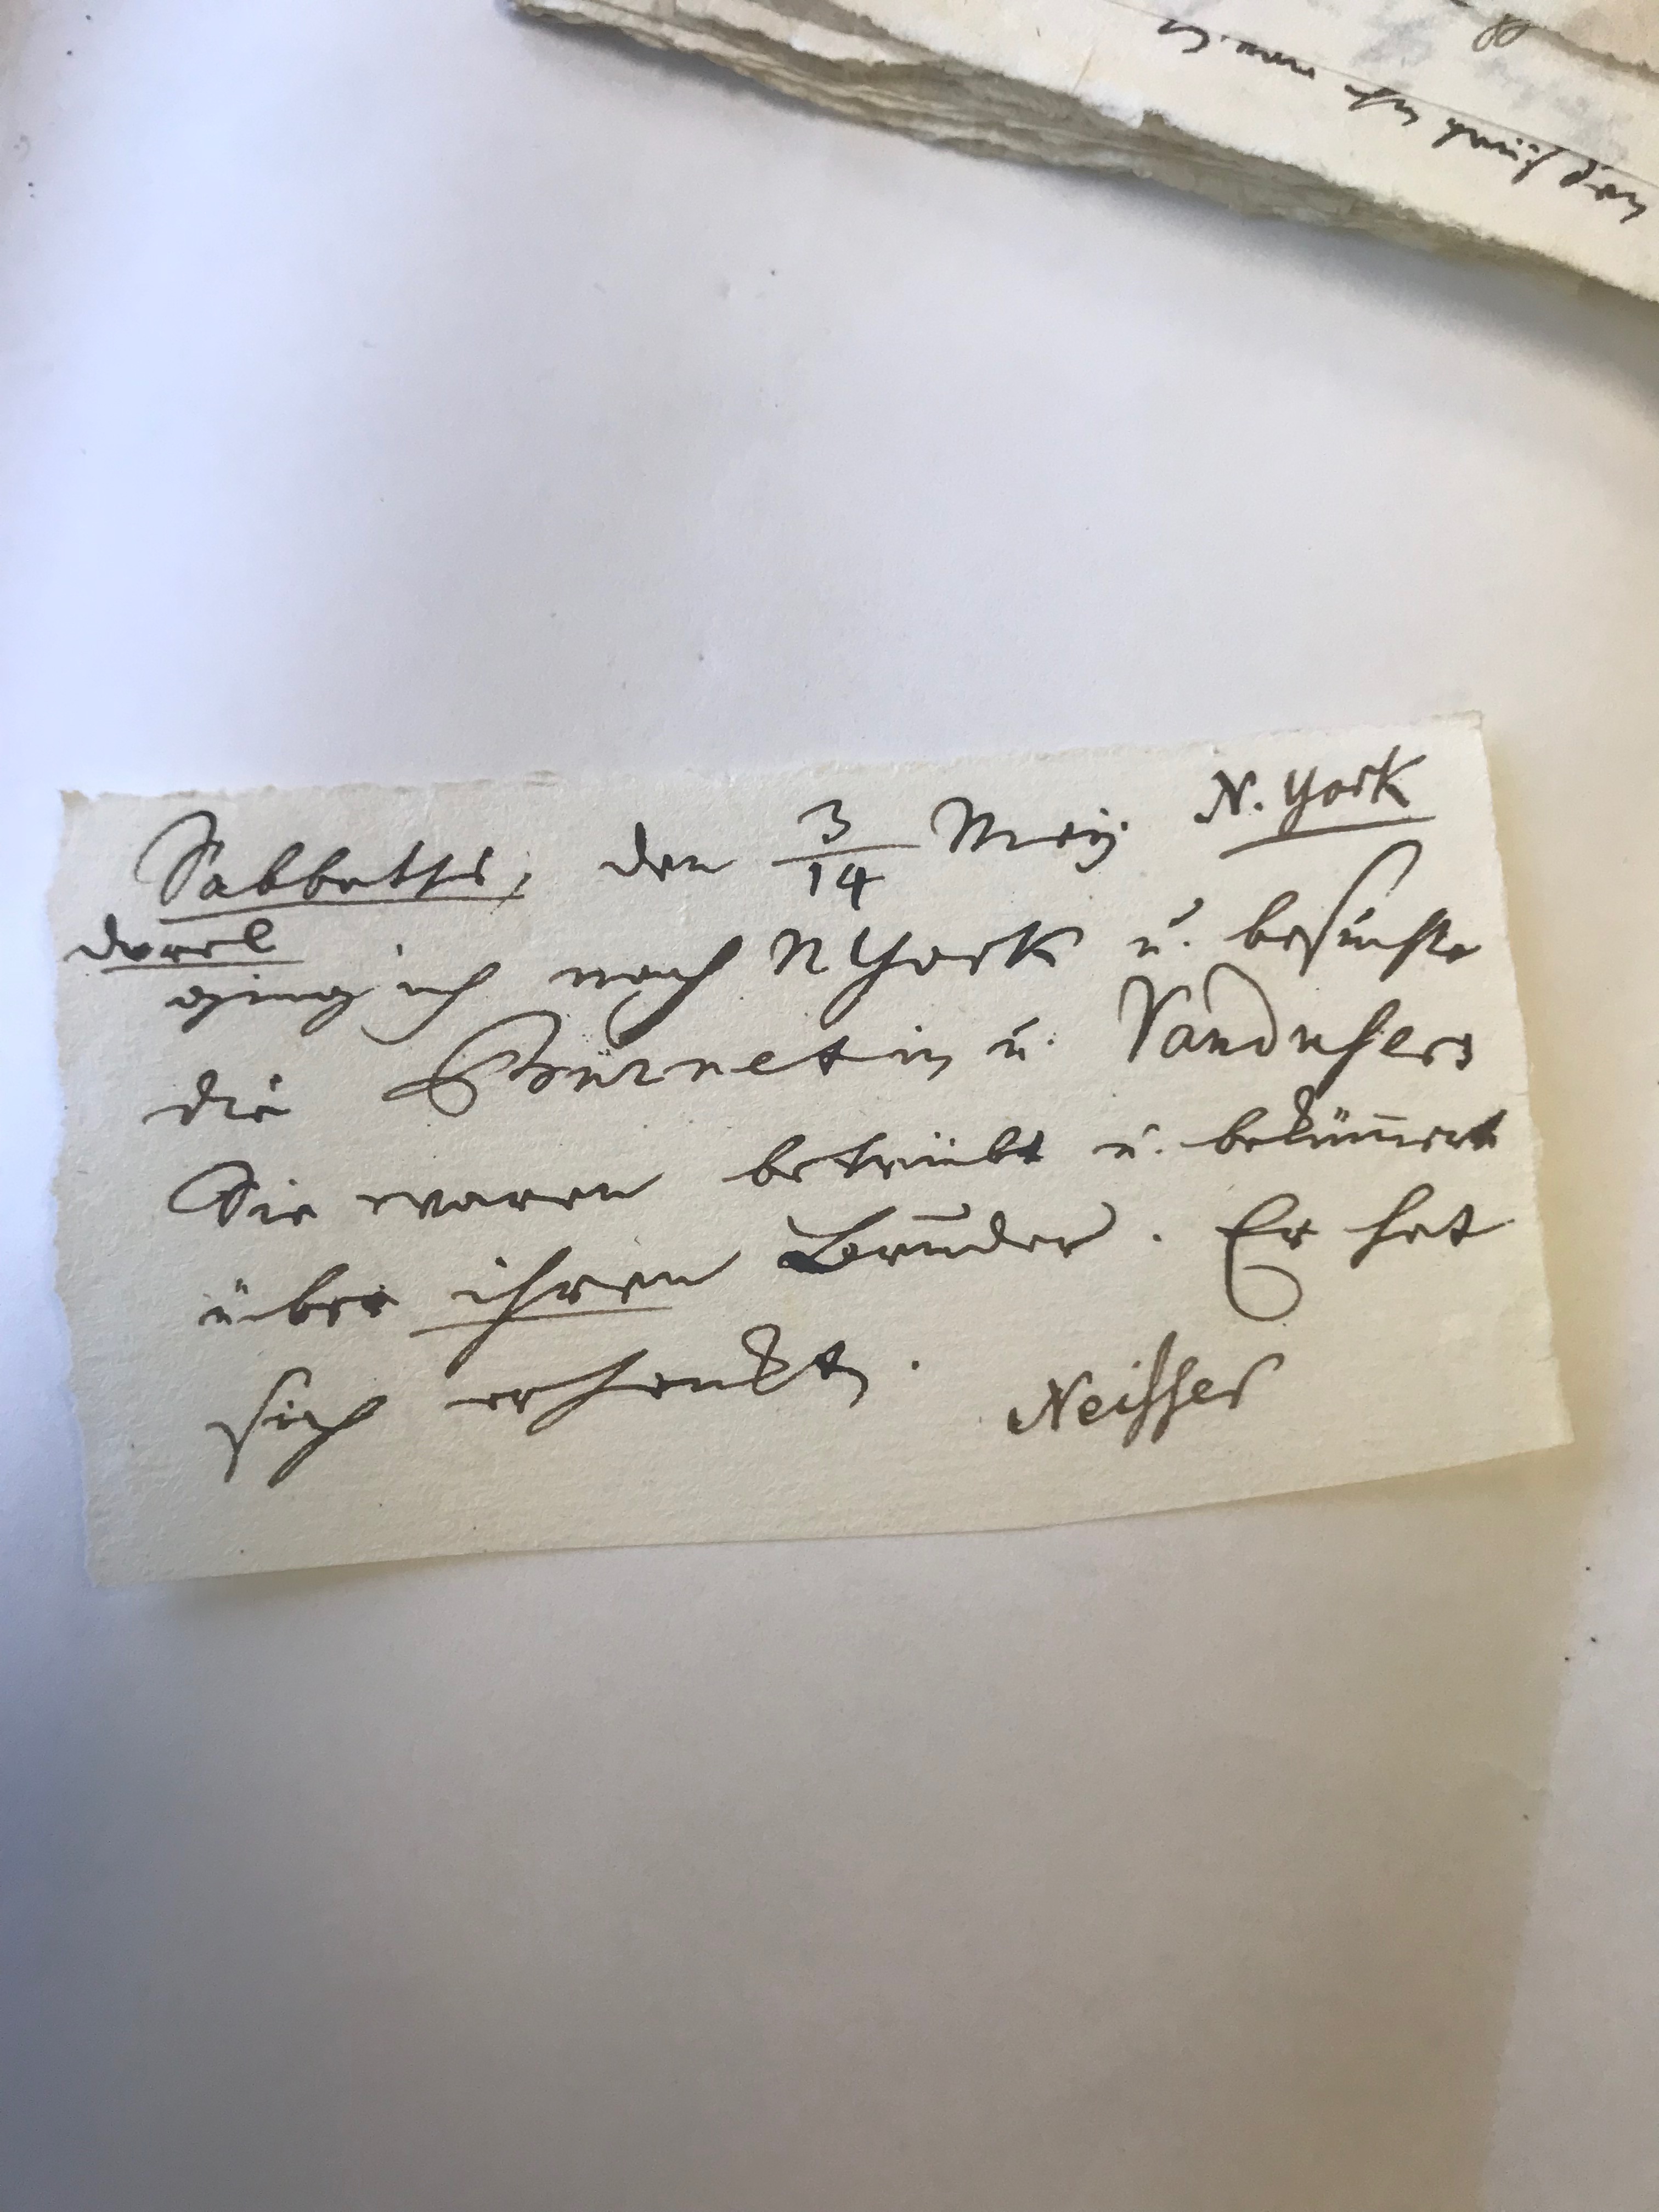 es

Sabbaths, den 3/14 Meij N. York
ging ich nach N York u. besuchte
die Burnetin u. Vandusers
Sie waren betrübt u. beküm̅ert
über ihren Bruder. Er hat
sich erhenkt. Neisser